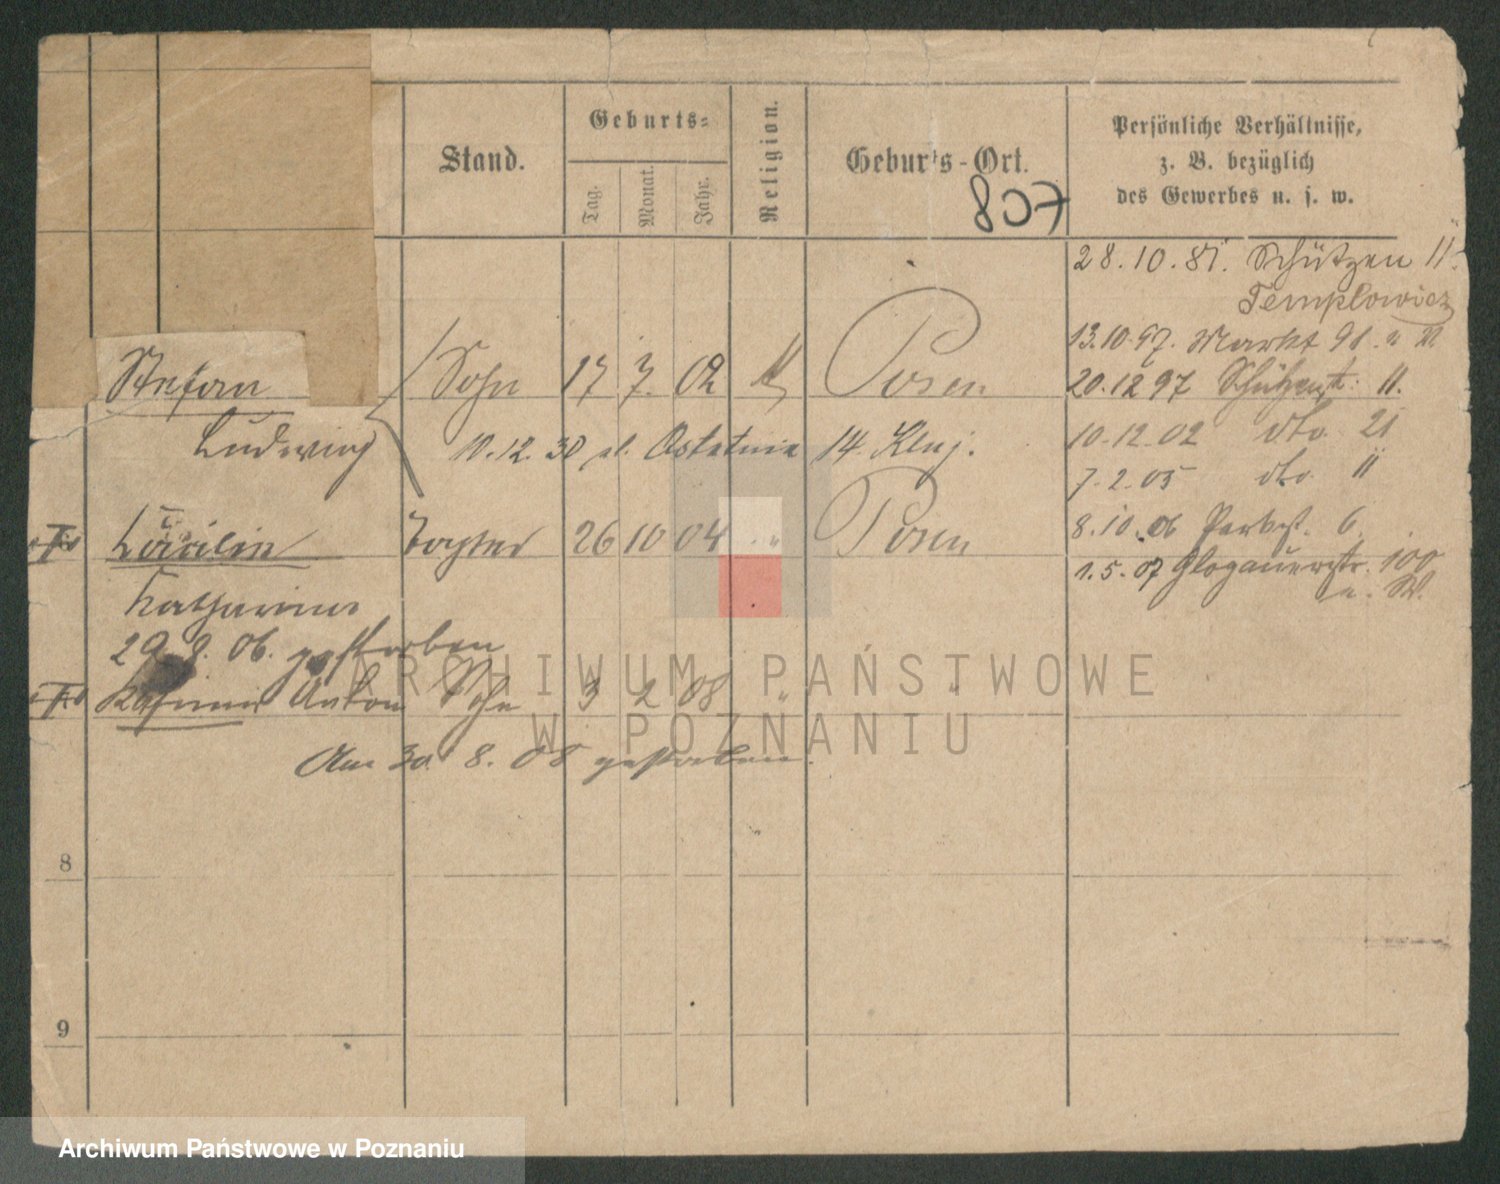 Stand.
Geburts-
Tag.
Monat.
Jahr.
Religion.
Geburts-Ort.
807
Persönliche Verhältnisse,
z. B. bezüglich
des Gewerbes u. s. w.
28.10.81. Schützen 11.
Templowicz
13.10.97. Markt 91.
20.12 97 Schützenstr. 11.
10.12 02 dto. 21
7.2.05 dto. 11
8.10.06 Parkst. 6
1.5.07 Glogauerstr. 100
Stefan Sohn 17 7. 02 Posen
Ludwig 10.12.30 ul. Ostatnia 14 Kluj.
Cäcilie Tochter 26 10 04 " Posen
Katharina
29.9.06. gestorben
Kasimir Anton Sohn 3 2 08 " "
Am 30. 8. 08 gestorben.
8
9
ARCHIWUM PAŃSTWOWE
W POZNANIU
Archiwum Państwowe w Poznaniu